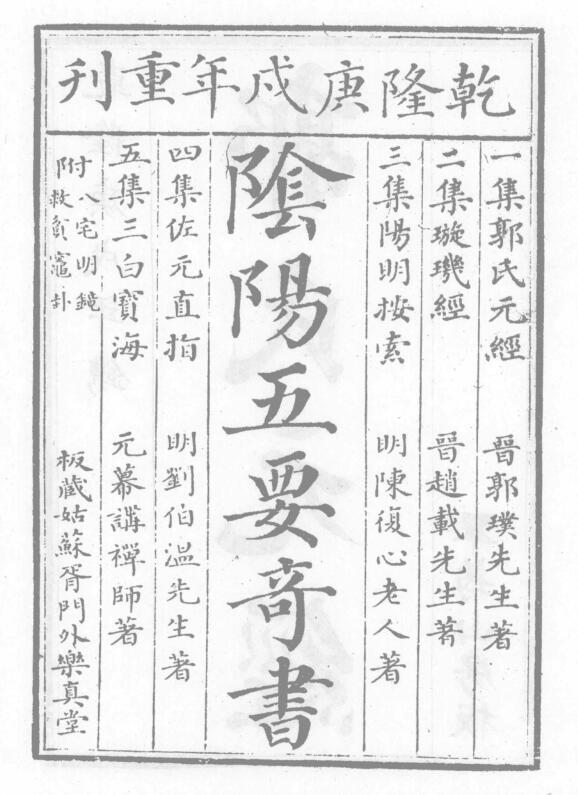 乾隆庚戌年重刊
一集郭氏元經 晉郭璞先生著
二集璇璣經 晉趙載先生著
三集陽明按索 明陳復心老人著
陰陽五要奇書
四集佐元直指 明劉伯温先生著
五集三白寶海 元幕講禪師著
附八宅明鏡
附救貧竈卦
板藏姑蘇胥門外樂真堂